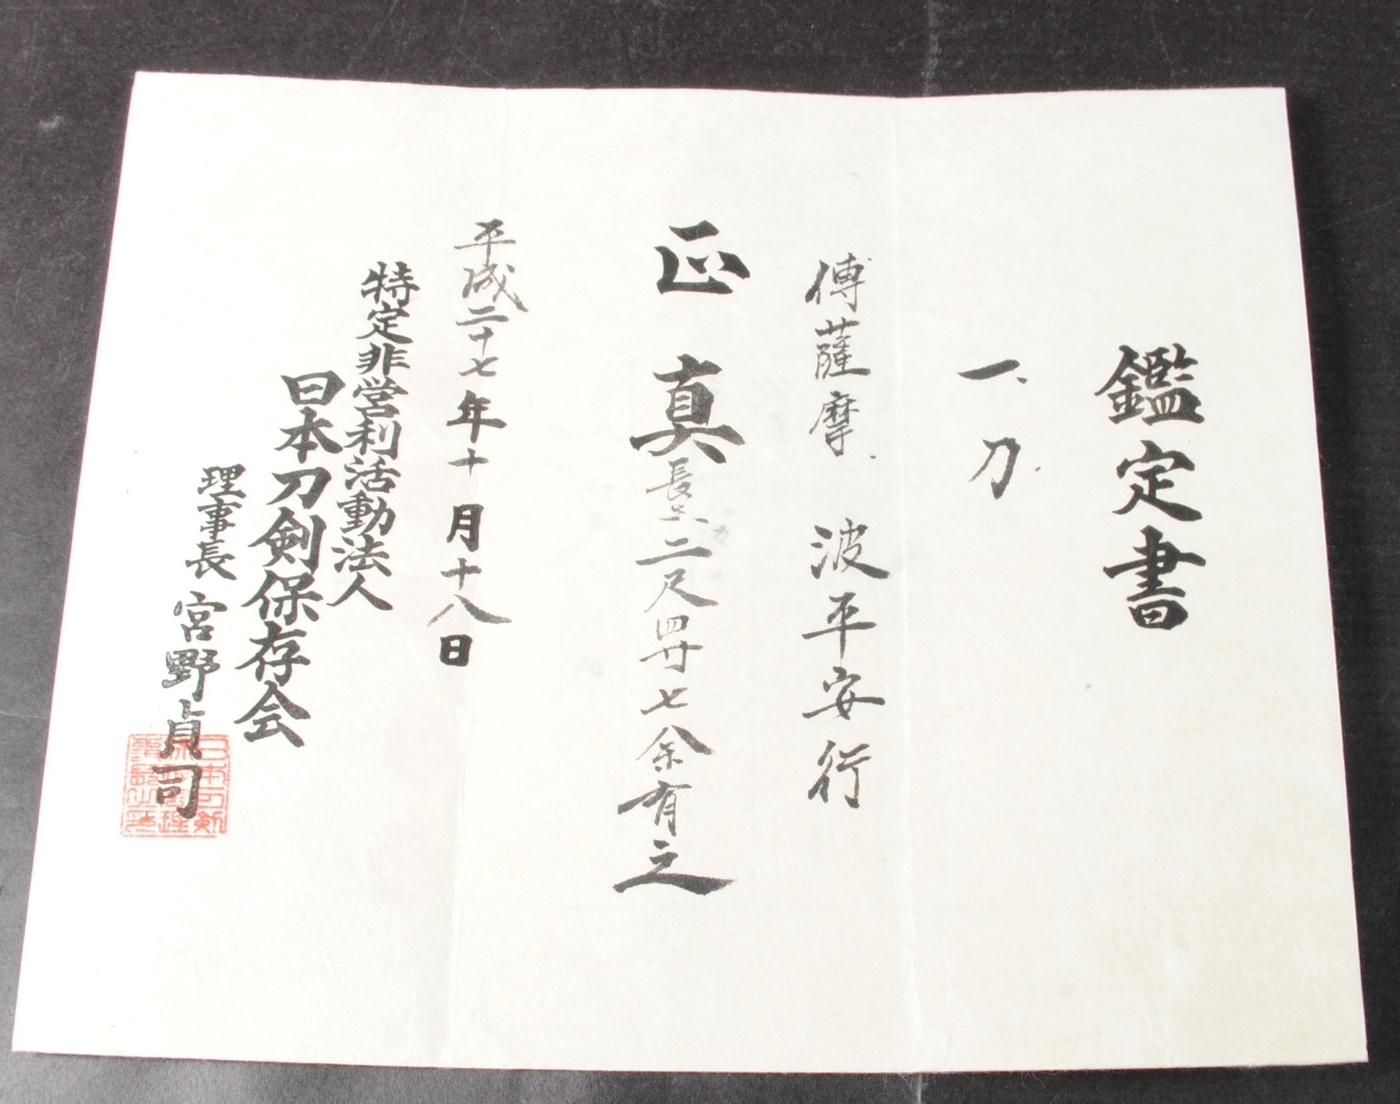 鑑定書
一、刀.
傳薩摩.波平安行
正真
長さ二尺四寸七余有之
平成二十七年十月十八日
特定非営利活動法人
日本刀剣保存会
理事長 宮野貞司